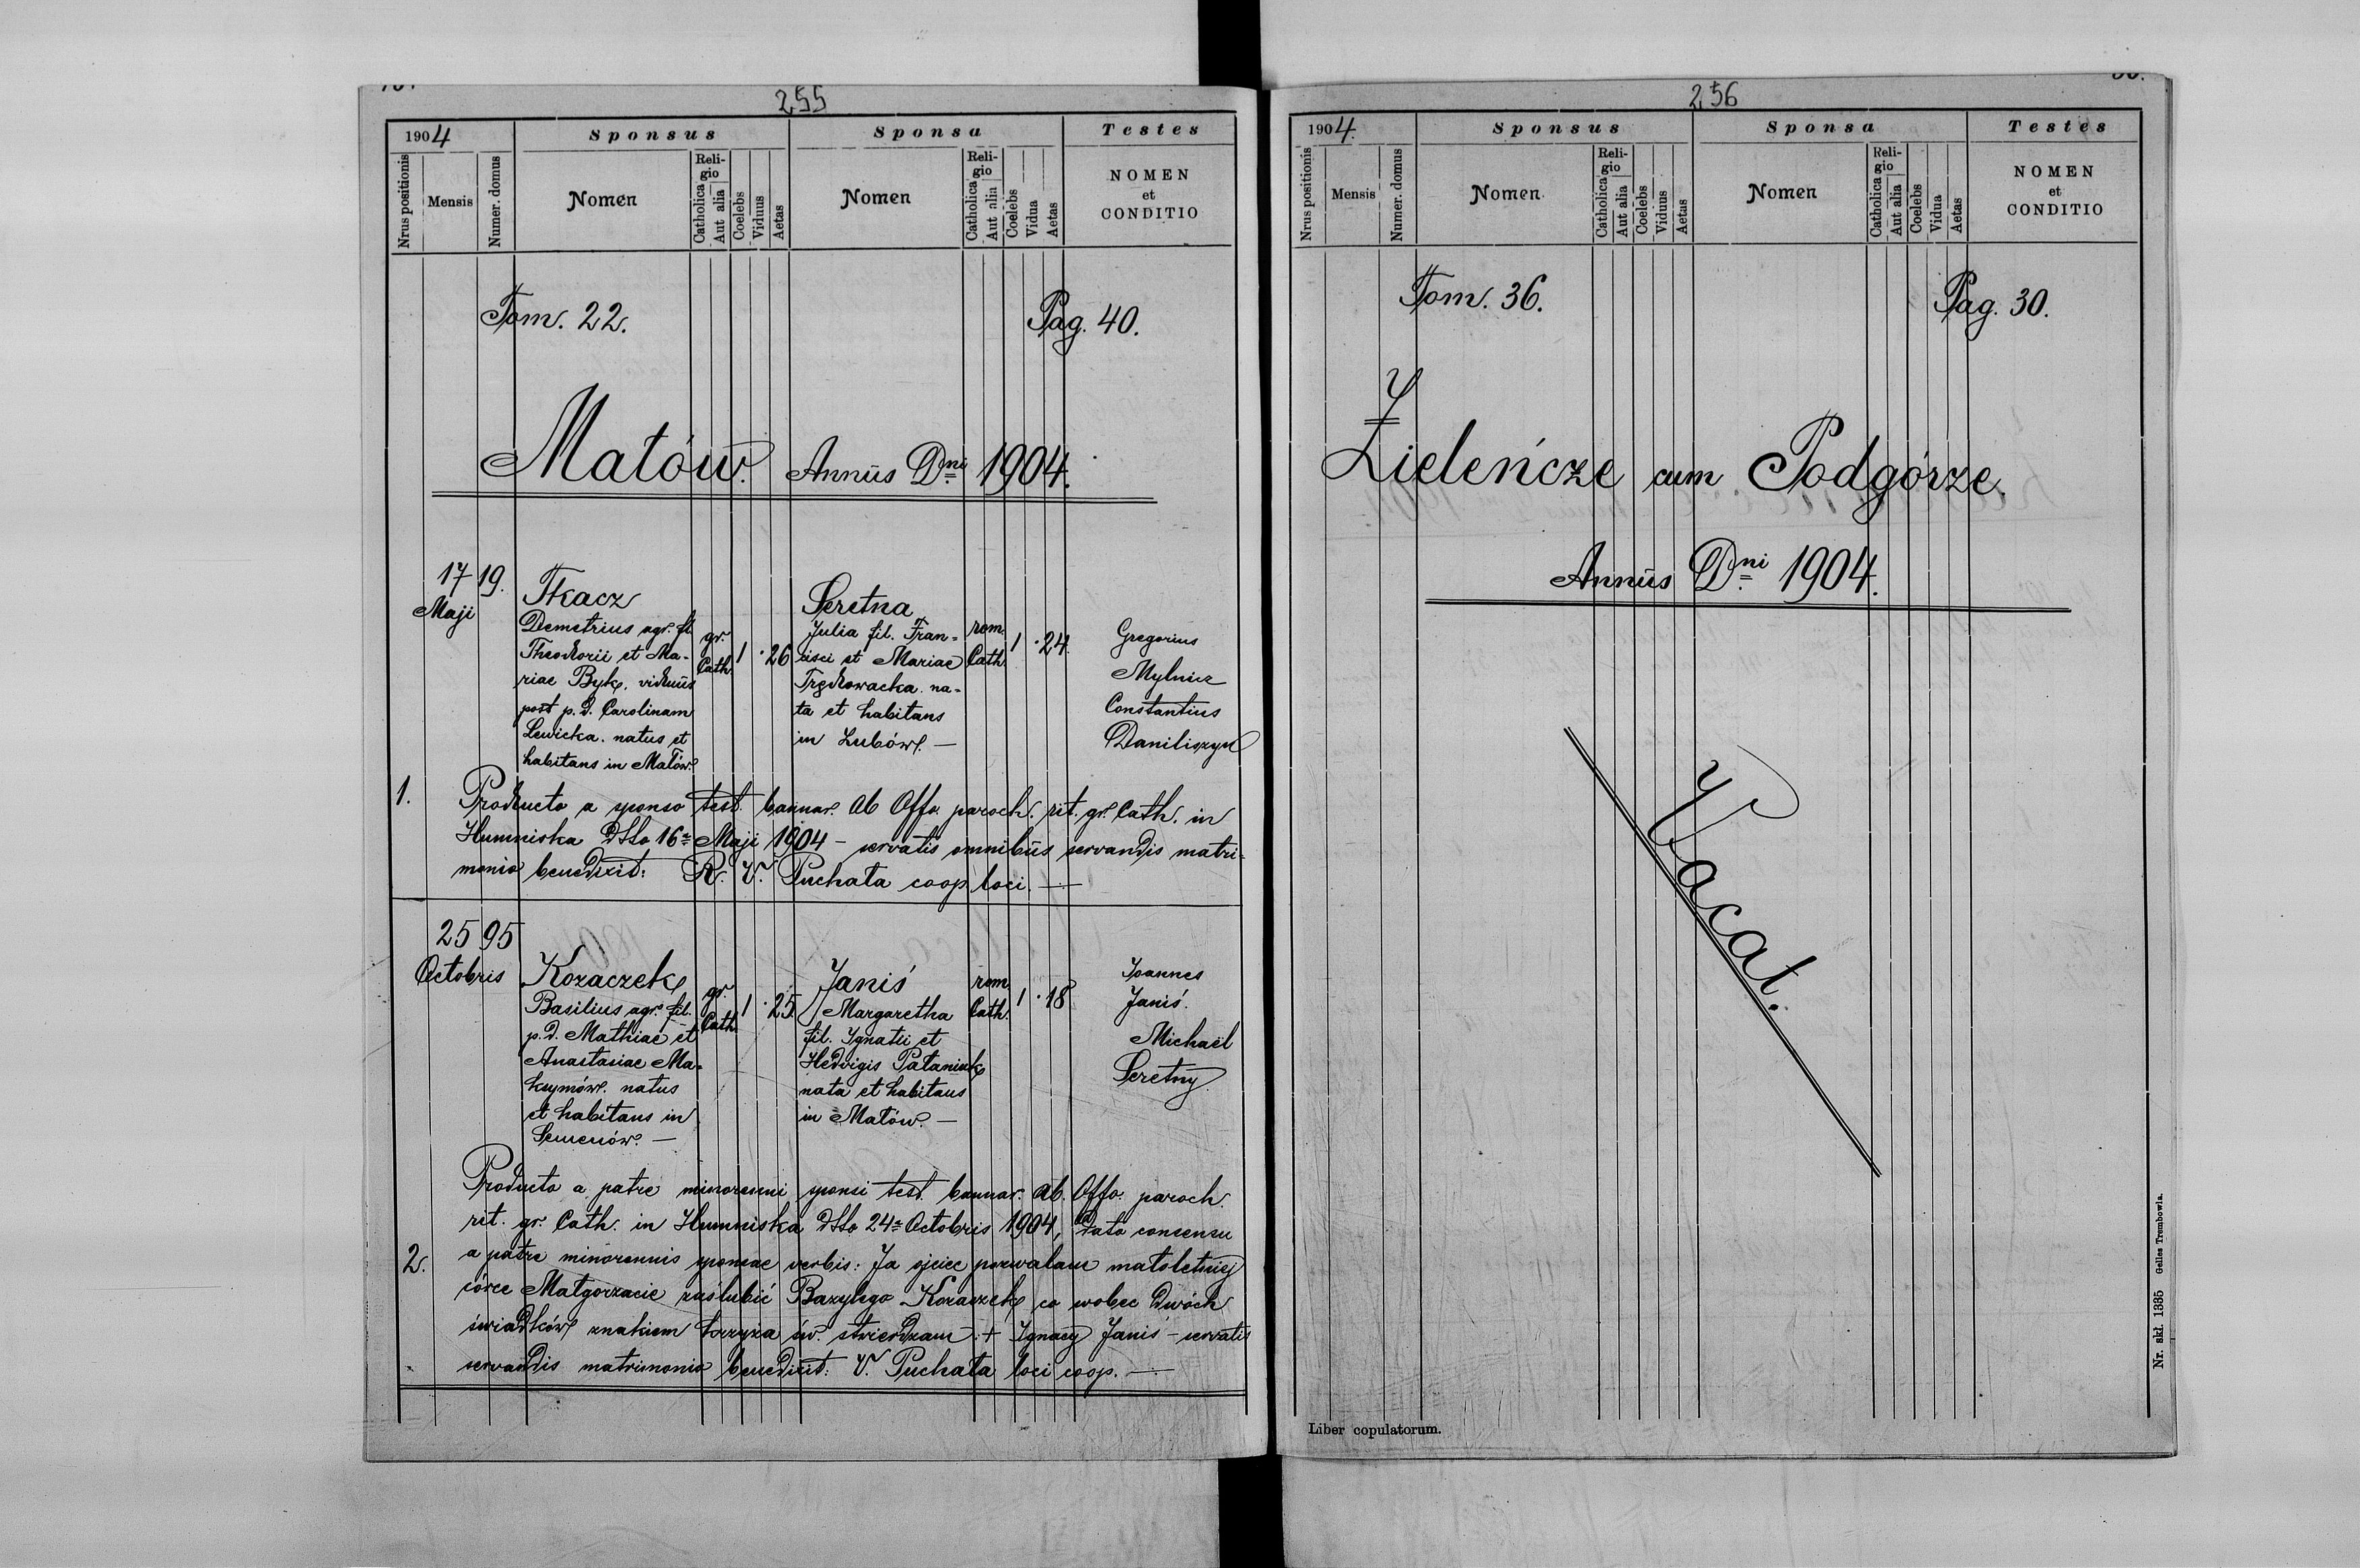 255
1904
Sponsus
Sponsa
Testes
Nrus positionis
Mensis
Numer. domus
Nomen
Religio
Catholica
Aut alia
Coelebs
Viduus
Aetas
Nomen
Religio
Catholica
Aut alia
Coelebs
Vidua
Aetas
NOMEN
et
CONDITIO
Tom. 22.
Pag. 40.
Małów. Annus Dni 1904.
17 Maji
19.
Tkacz
Demetrius agr. fil.
Theodorii et Ma-
riae Byk. viduus
post p. d. Carolinam
Lewicka. natus et
habitans in Małów.
gr. Cath.
1
26
Seretna
Julia fil. Fran-
cisci et Mariae
Trędowacka. na-
ta et habitans
in Lubów. —
rom. Cath.
1
24.
Gregorius
Mylnicz
Constantius
Daniliszyn
1.
Producto a sponso test. bannor. ab Offo. paroch. rit. gr. Cath. in
Humniska dtto 16 Maji 1904 – servatis omnibus servandis matri-
monio benedixit: R. V. Puchała coop. loci. —
25 Octobris
95
Kozaczek
Basilius agr. fil.
p. d. Mathiae et
Anastasiae Ma-
ksymów. natus
et habitans in
Semenów. —
gr. Cath.
1
25.
Janiś
Margaretha
fil. Ignatii et
Hedvigis Pataniuk
nata et habitans
in Małów. —
rom. Cath.
1
18
Joannes
Janiś.
Michaël
Seretny.
2.
Producto a patre minorenni sponsi test. bannor. ab. Offo. paroch.
rit. gr. Cath. in Humniska dtto 24 Octobris 1904, Dato consensu
a patre minorennis sponsae verbis: Ja ojciec pozwalam małoletniej
córce Małgorzacie zaślubić Bazylego Kozaczek co wobec dwóch
świadków znakiem krzyża św. stwierdzam: + Ignacy Janiś – servatis
servandis matrimonio benedixit: V. Puchała loci coop. —
256
1904.
Sponsus
Sponsa
Testes
Nrus positionis
Mensis
Numer. domus
Nomen
Religio
Catholica
Aut alia
Coelebs
Viduus
Aetas
Nomen
Religio
Catholica
Aut alia
Coelebs
Vidua
Aetas
NOMEN
et
CONDITIO
Tom. 36.
Pag. 30.
Zieleńcze cum Podgórze.
Annus Dni 1904.
Vacat.
Liber copulatorum.
Nr. skł. 1335 Gelles Trembowla.